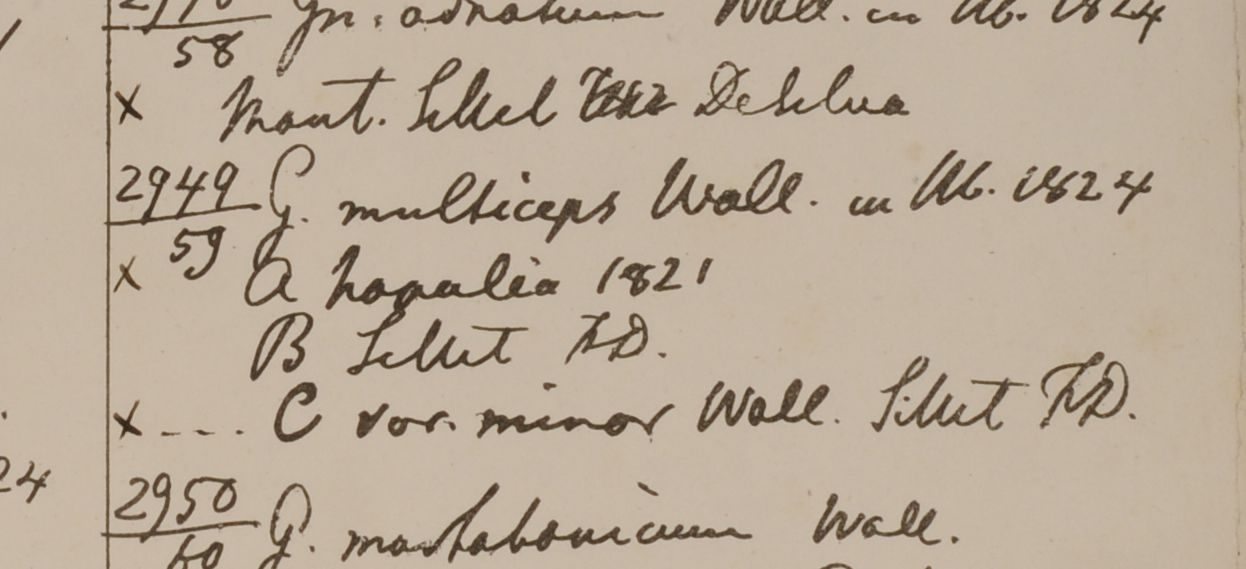 58 Gn. adnatum Wall. in Ab. 1824
x Mont. Sillet De Silva
2949 G. multiceps Wall. in Ab. 1824
59
x A Napalia 1821
B Sillet FD.
x .... C var. minor Wall. Sillet FD.
24
2950 G. martabanicum Wall.
60